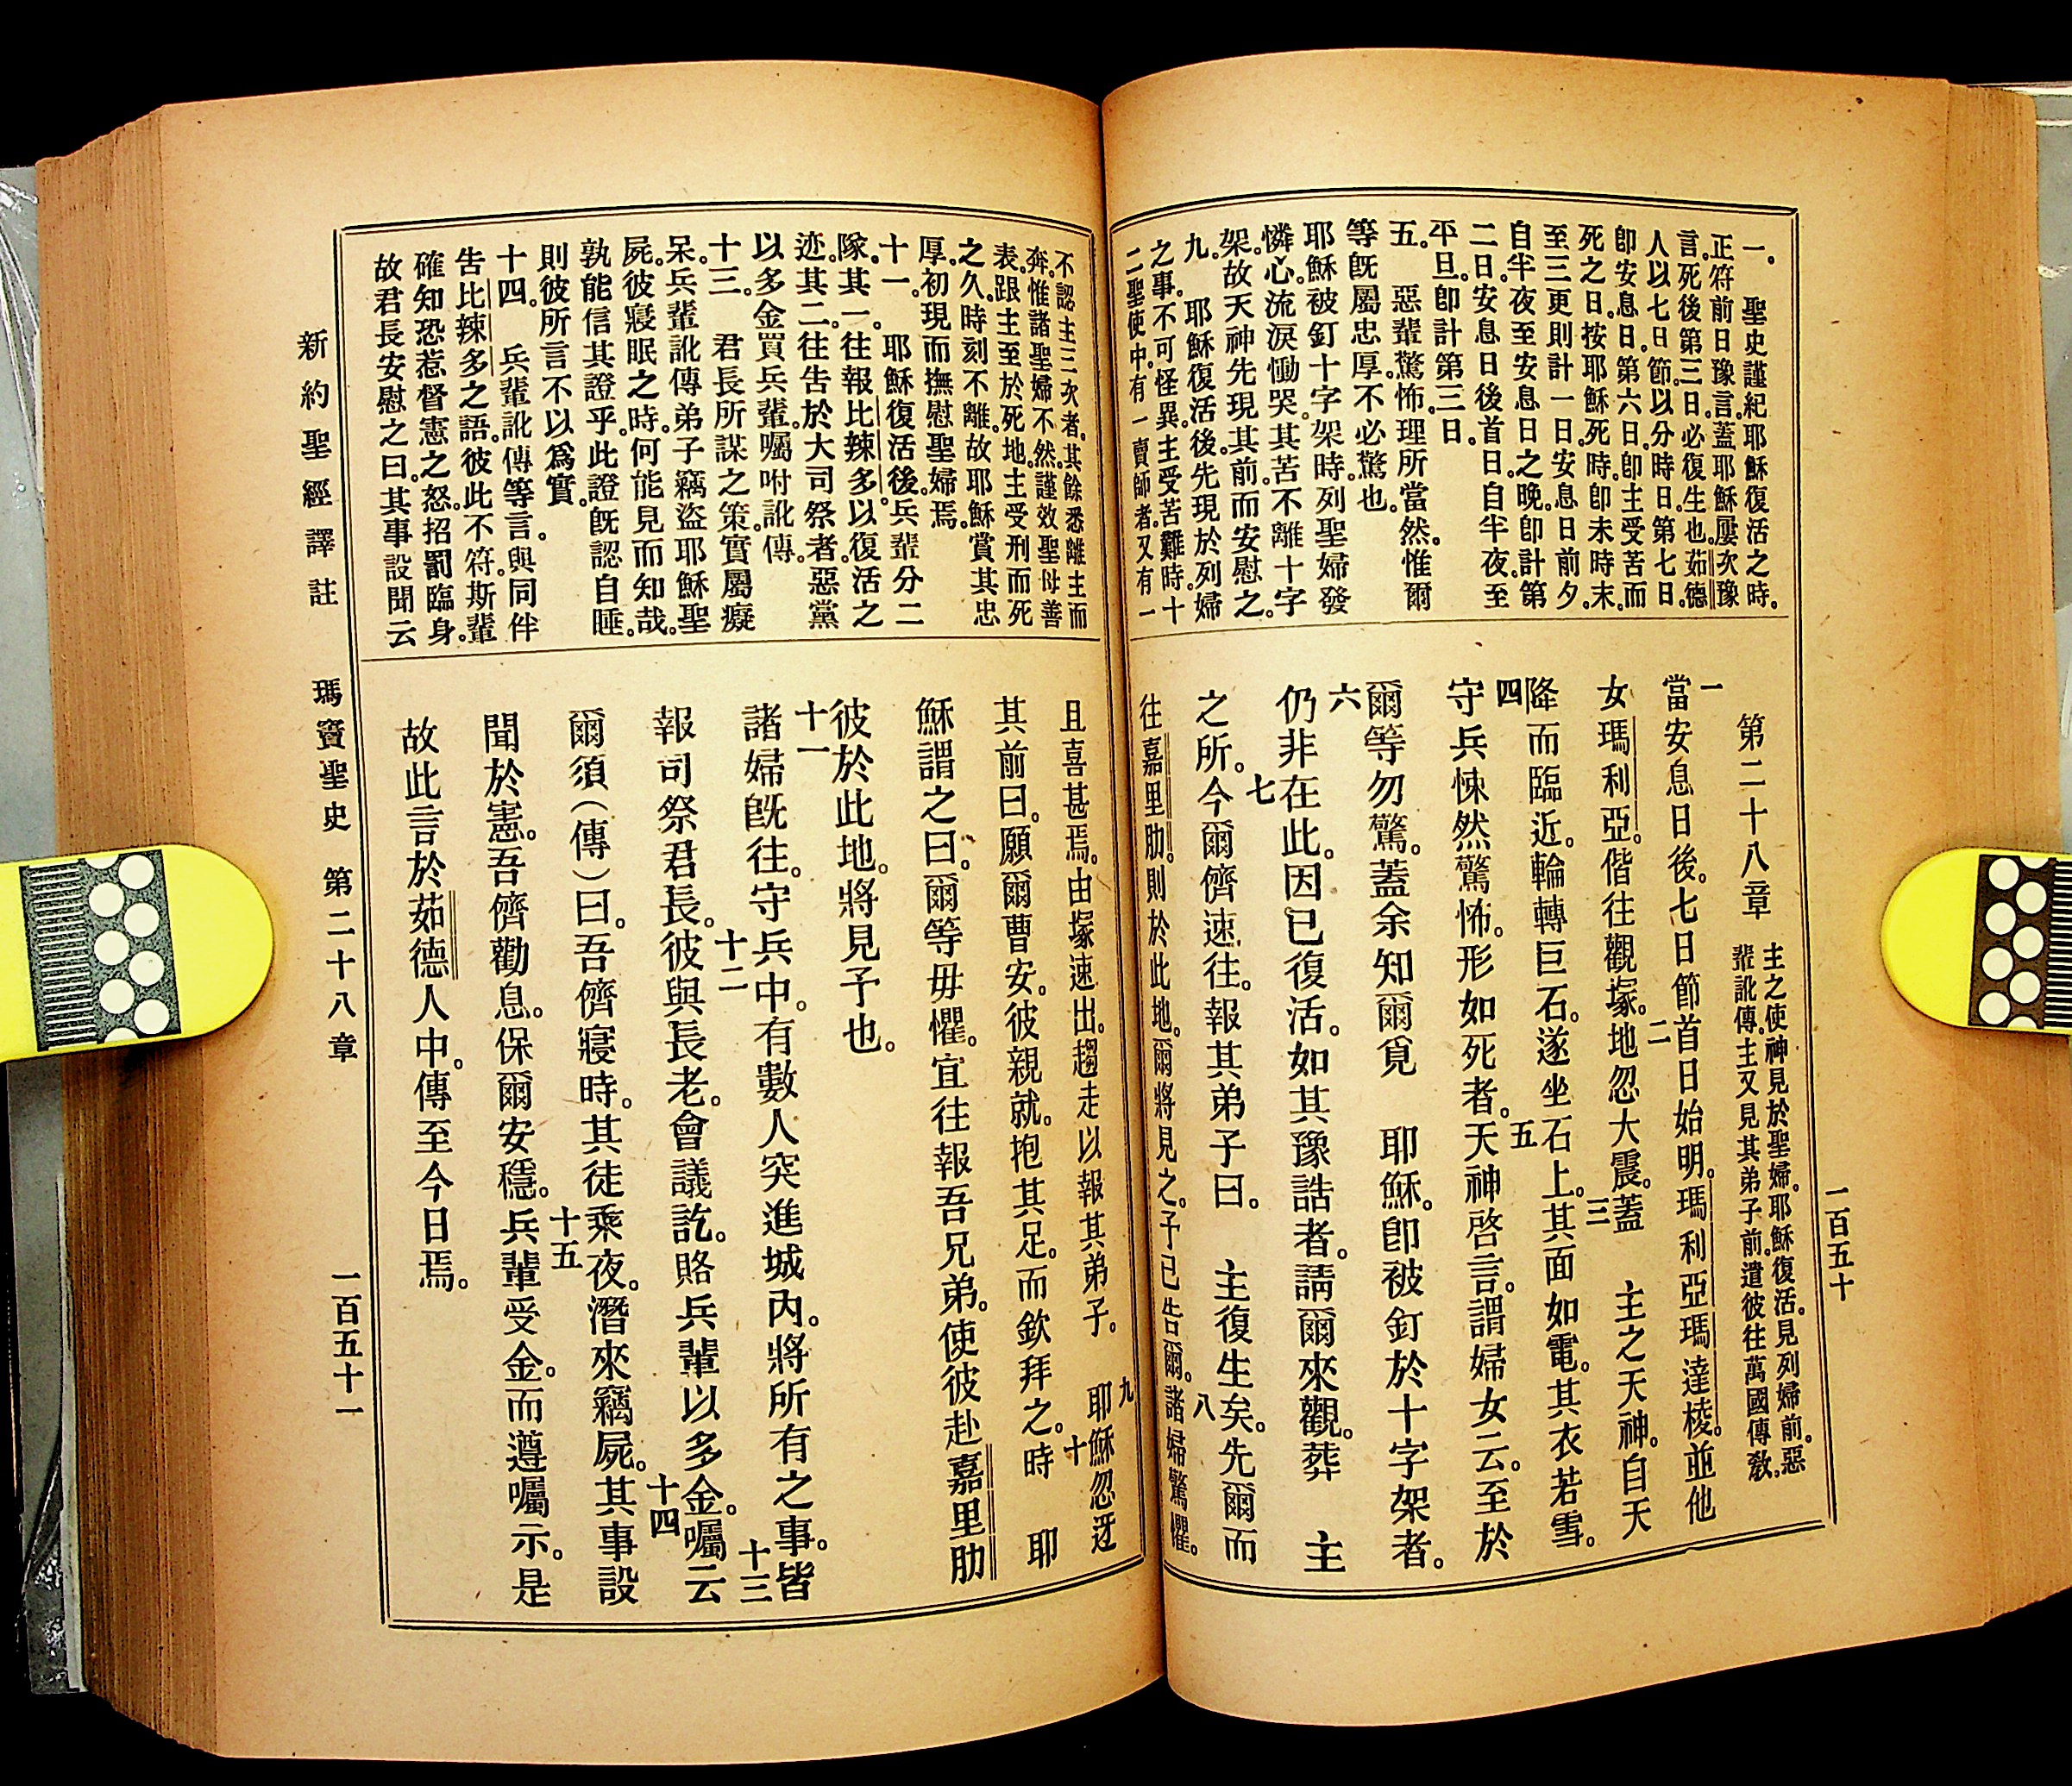 一百五十
一。 聖史謹紀耶穌復活之時。
正符前日豫言。蓋耶穌屢次豫
言。死後第三日。必復生也。茹德
人以七日節。以分時日。第七日。
卽安息日。第六日。卽主受苦而
死之日。按耶穌死時。卽未時末。
至三更則計一日。安息日前夕。
自半夜至安息日之晚。卽計第
二日。安息日後首日。自半夜至
平旦。卽計第三日。
五。 惡輩驚怖。理所當然。惟爾
等旣屬忠厚。不必驚也。
耶穌被釘十字架時。列聖婦發
憐心。流淚慟哭。其苦不離十字
架。故天神先現其前。而安慰之。
九。 耶穌復活後。先現於列婦
之事。不可怪異。主受苦難時。十
二聖使中。有一賣師者。又有一
第二十八章
主之使神見於聖婦。耶穌復活。見列婦前。惡
輩訛傳。主又見其弟子前。遣彼往萬國傳敎。
一
當安息日後。七日節首日始明。瑪利亞瑪達棱。並他
二
女瑪利亞。偕往觀塚。地忽大震。蓋 主之天神。自天
三
降而臨近。輪轉巨石。遂坐石上。其面如電。其衣若雪。
四
守兵悚然驚怖。形如死者。天神啓言。謂婦女云。至於
五
爾等勿驚。蓋余知爾覓 耶穌。卽被釘於十字架者。
六
仍非在此。因已復活。如其豫誥者。請爾來觀。葬 主
之所。今爾儕速往。報其弟子曰。 主復生矣。先爾而
七
往嘉里肋。則於此地。爾將見之。予已告爾。諸婦驚懼。
八
不認主三次者。其餘悉離主而
奔。惟諸聖婦不然。謹效聖母善
表。跟主至於死地。主受刑而死
之久。時刻不離。故耶穌賞其忠
厚。初現而撫慰聖婦焉。
十一。 耶穌復活後。兵輩分二
隊。其一。往報比辣多。以復活之
迹。其二。往告於大司祭者。惡黨
以多金買兵輩。囑咐訛傳。
十三。 君長所謀之策。實屬癡
呆。兵輩訛傳弟子竊盜耶穌聖
屍。彼寢眠之時。何能見而知哉。
孰能信其證乎。此證旣認自睡。
則彼所言不以爲實。
十四。 兵輩訛傳等言。與同伴
告比辣多之語。彼此不符。斯輩
確知恐惹督憲之怒。招罰臨身。
故君長安慰之曰。其事設聞云
且喜甚焉。由塚速出。趨走以報其弟子。 耶穌忽迓
九
其前曰。願爾曹安。彼親就。抱其足。而欽拜之。時 耶
十
穌謂之曰。爾等毋懼。宜往報吾兄弟。使彼赴嘉里肋
彼於此地。將見予也。
十一
諸婦旣往。守兵中。有數人突進城內。將所有之事。皆
報司祭君長。彼與長老。會議訖。賂兵輩以多金。囑云
十二
十三
爾須（傳）曰。吾儕寢時。其徒乘夜。潛來竊屍。其事設
十四
聞於憲。吾儕勸息。保爾安穩。兵輩受金。而遵囑示。是
十五
故此言於茹德人中。傳至今日焉。
新約聖經譯註 瑪竇聖史 第二十八章 一百五十一